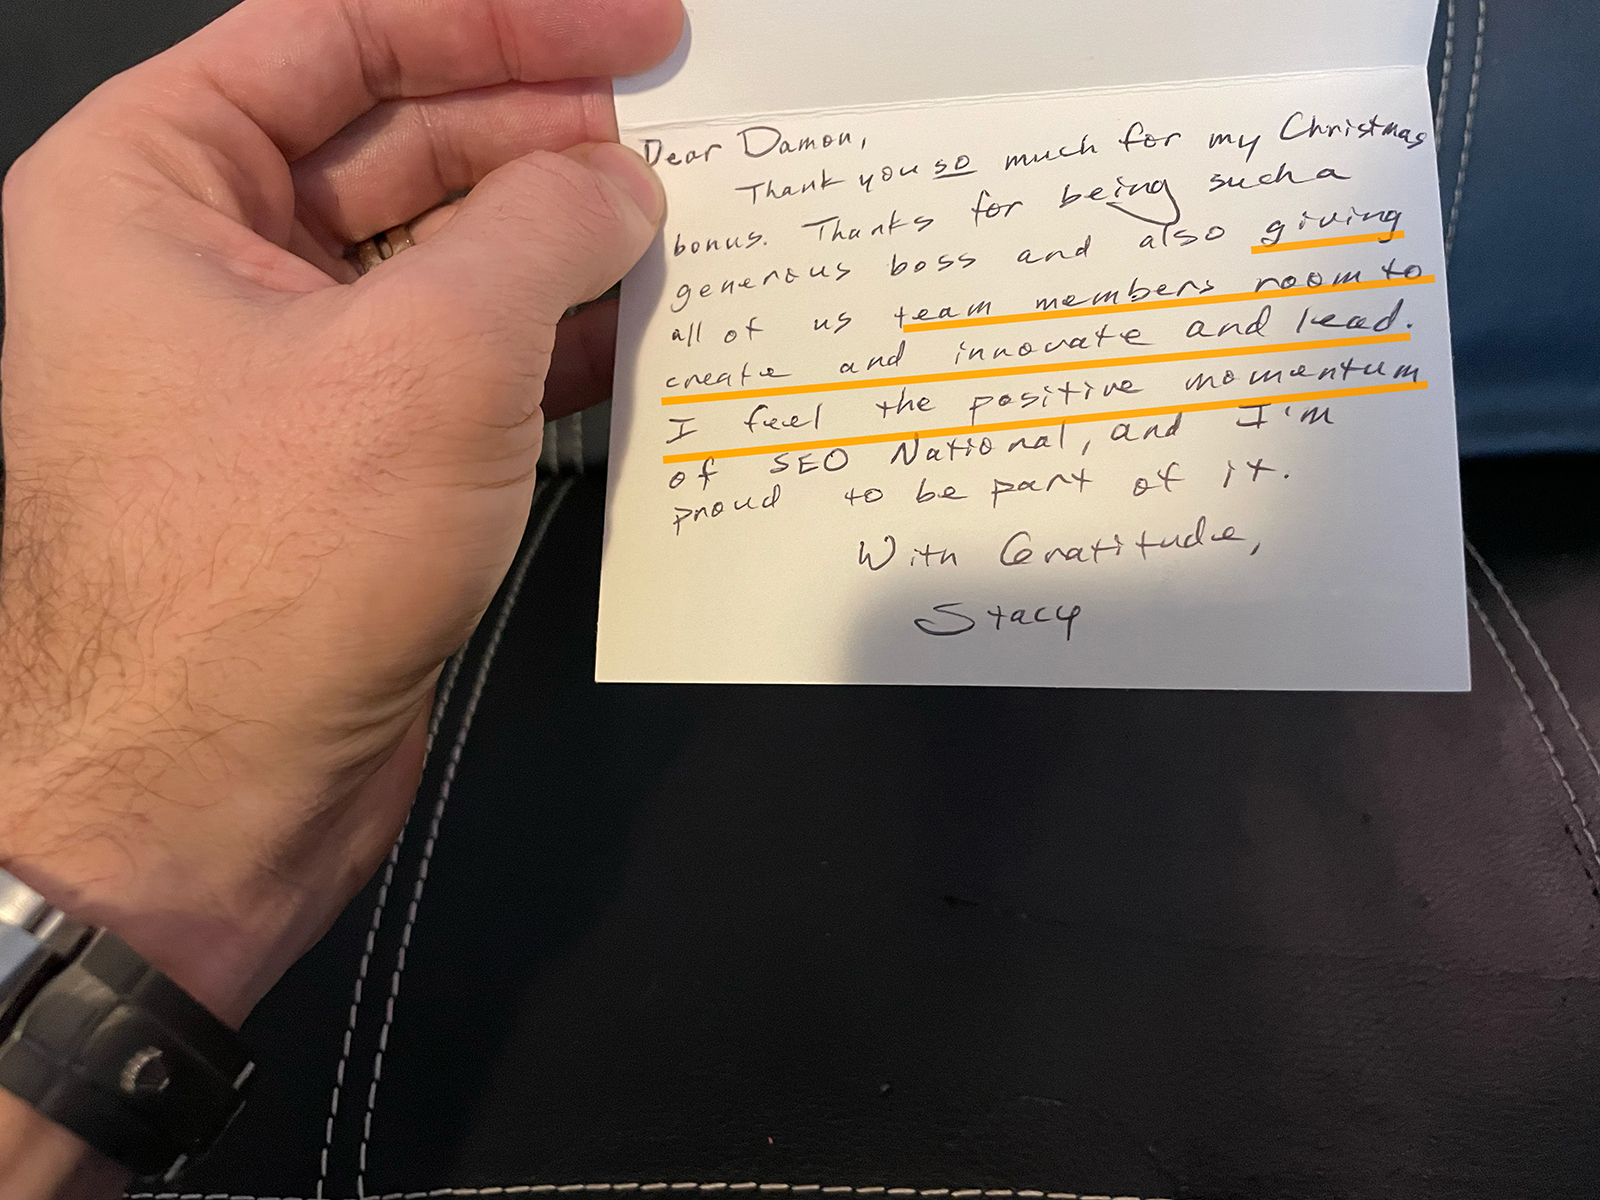 Dear Damon,
Thank you so much for my Christmas
bonus. Thanks for being such a
generous boss and also giving
all of us team members room to
create and innovate and lead.
I feel the positive momentum
of SEO National, and I'm
proud to be part of it.
With Gratitude,
Stacy